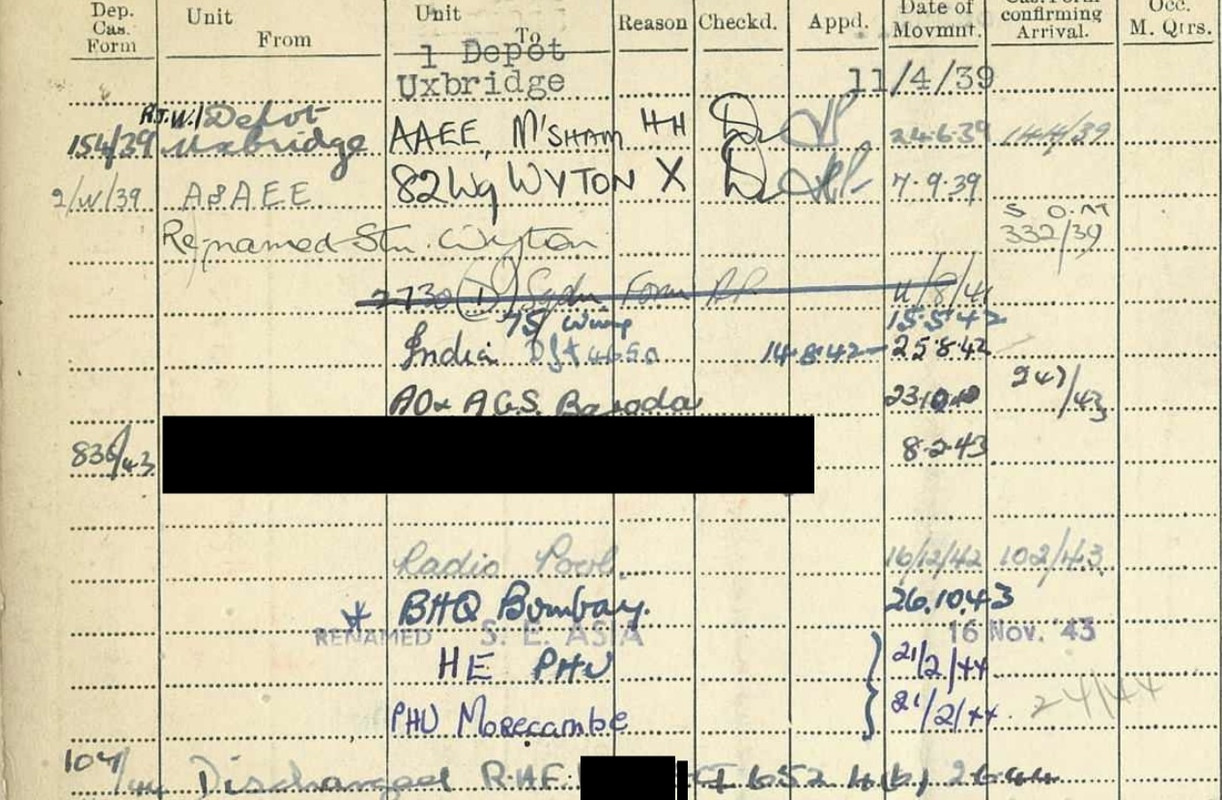 Dep. Cas. Form Unit From Unit To Reason Checkd. Appd. Date of Movmnt. Cas. Form confirming Arrival. Occ. M. Qtrs.
1 Depot
Uxbridge 11/4/39
154/39 R.T.W./ Depot Uxbridge AAEE, M'SHAM HH 24.6.39 144/39
2/W/39 A&AEE 82 Wg WYTON X 7.9.39
Renamed Stn. Wyton 332/39
2730 (D) Sqdn Form 11/8/41
75 Wing 15.5.42
India Dft 4650 14.8.42 25 8 42
AOx AGS. Baroda 247/43
836/43 8.2.43
Radio Pool. 16/12/42 102/43
BHQ Bombay. 26.10.43
RENAMED S. E. ASIA 16 Nov. '43
HE PHU 21/2/44
PHU Morecambe 21/2/44. 24/44
104/44 Discharged R.A.F. 652